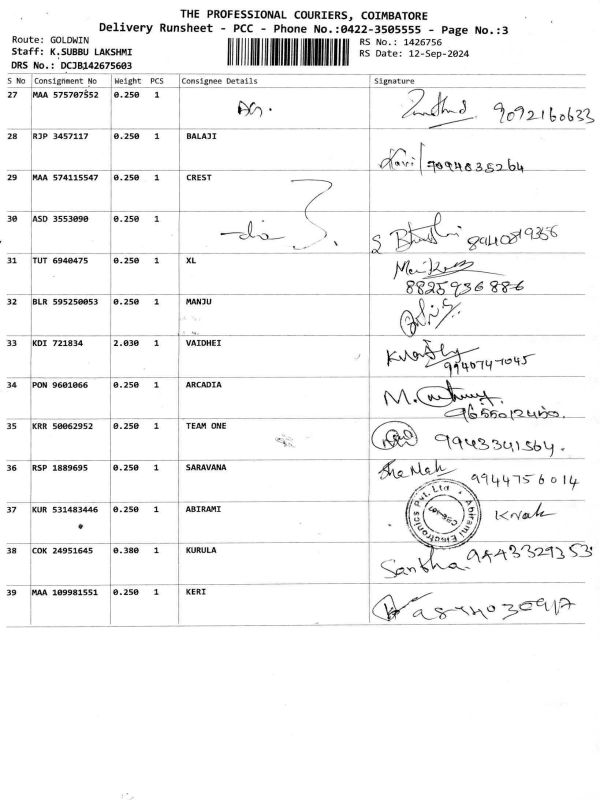 THE PROFESSIONAL COURIERS, COIMBATORE
Delivery Runsheet - PCC - Phone No.:0422-3505555 - Page No.:3
Route: GOLDWIN
Staff: K.SUBBU LAKSHMI
DRS No.: DCJB142675603
RS No.: 1426756
RS Date: 12-Sep-2024
S No Consignment No Weight PCS Consignee Details Signature
27 MAA 575707552 0.250 1
9092160633
28 RJP 3457117 0.250 1 BALAJI
29 MAA 574115547 0.250 1 CREST
30 ASD 3553090 0.250 1
31 TUT 6940475 0.250 1 XL
8825936886
32 BLR 595250053 0.250 1 MANJU
33 KDI 721834 2.030 1 VAIDHEI
9940747045
34 PON 9601066 0.250 1 ARCADIA
35 KRR 50062952 0.250 1 TEAM ONE
9943341564.
36 RSP 1889695 0.250 1 SARAVANA
9944756014
37 KUR 531483446 0.250 1 ABIRAMI
Abirami Electronics Pvt. Ltd
38 COK 24951645 0.380 1 KURULA
9443329353
39 MAA 109981551 0.250 1 KERI